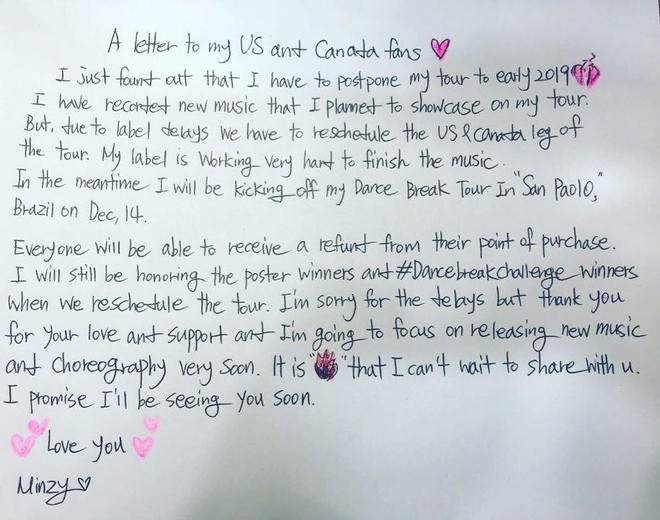 A letter to my US and Canada fans
I just found out that I have to postpone my tour to early 2019
I have recorded new music that I planned to showcase on my tour.
But, due to label delays we have to reschedule the US & Canada leg of
the tour. My label is working very hard to finish the music.
In the meantime I will be kicking off my Dance Break Tour In "San Paolo,"
Brazil on Dec, 14.
Everyone will be able to receive a refund from their point of purchase.
I will still be honoring the poster winners and #Dancebreakchallenge winners
when we reschedule the tour. I'm sorry for the delays but thank you
for your love and support and I'm going to focus on releasing new music
and choreography very soon. It is " " that I can't wait to share with u.
I promise I'll be seeing you soon.
Love you
Minzy